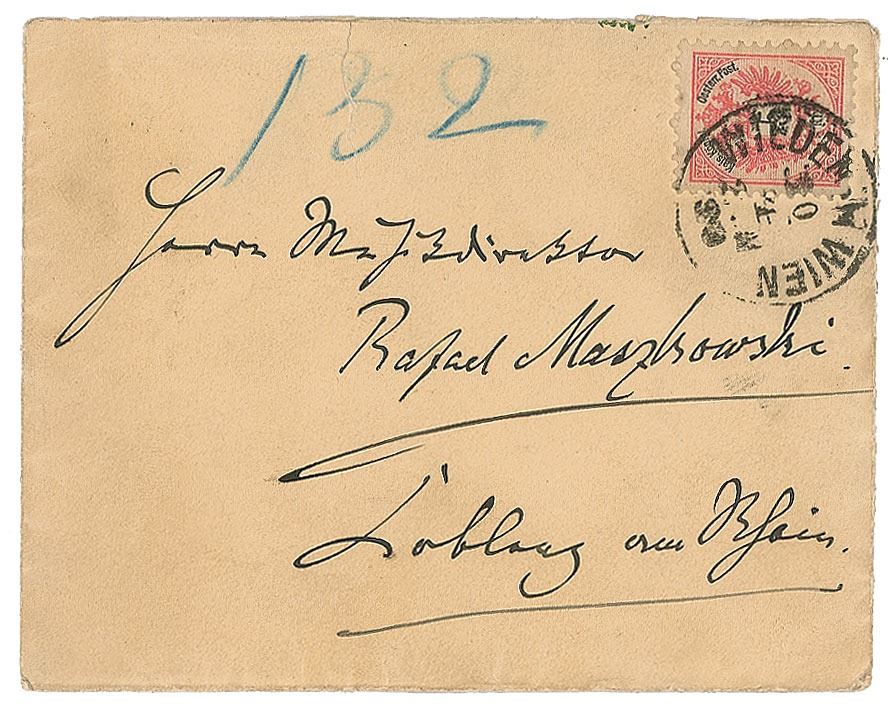 132
Oesterr. Post.
WIEDEN
WIEN
Herrn Musikdirektor
Rafael Maszkowski.
Coblenz am Rhein.